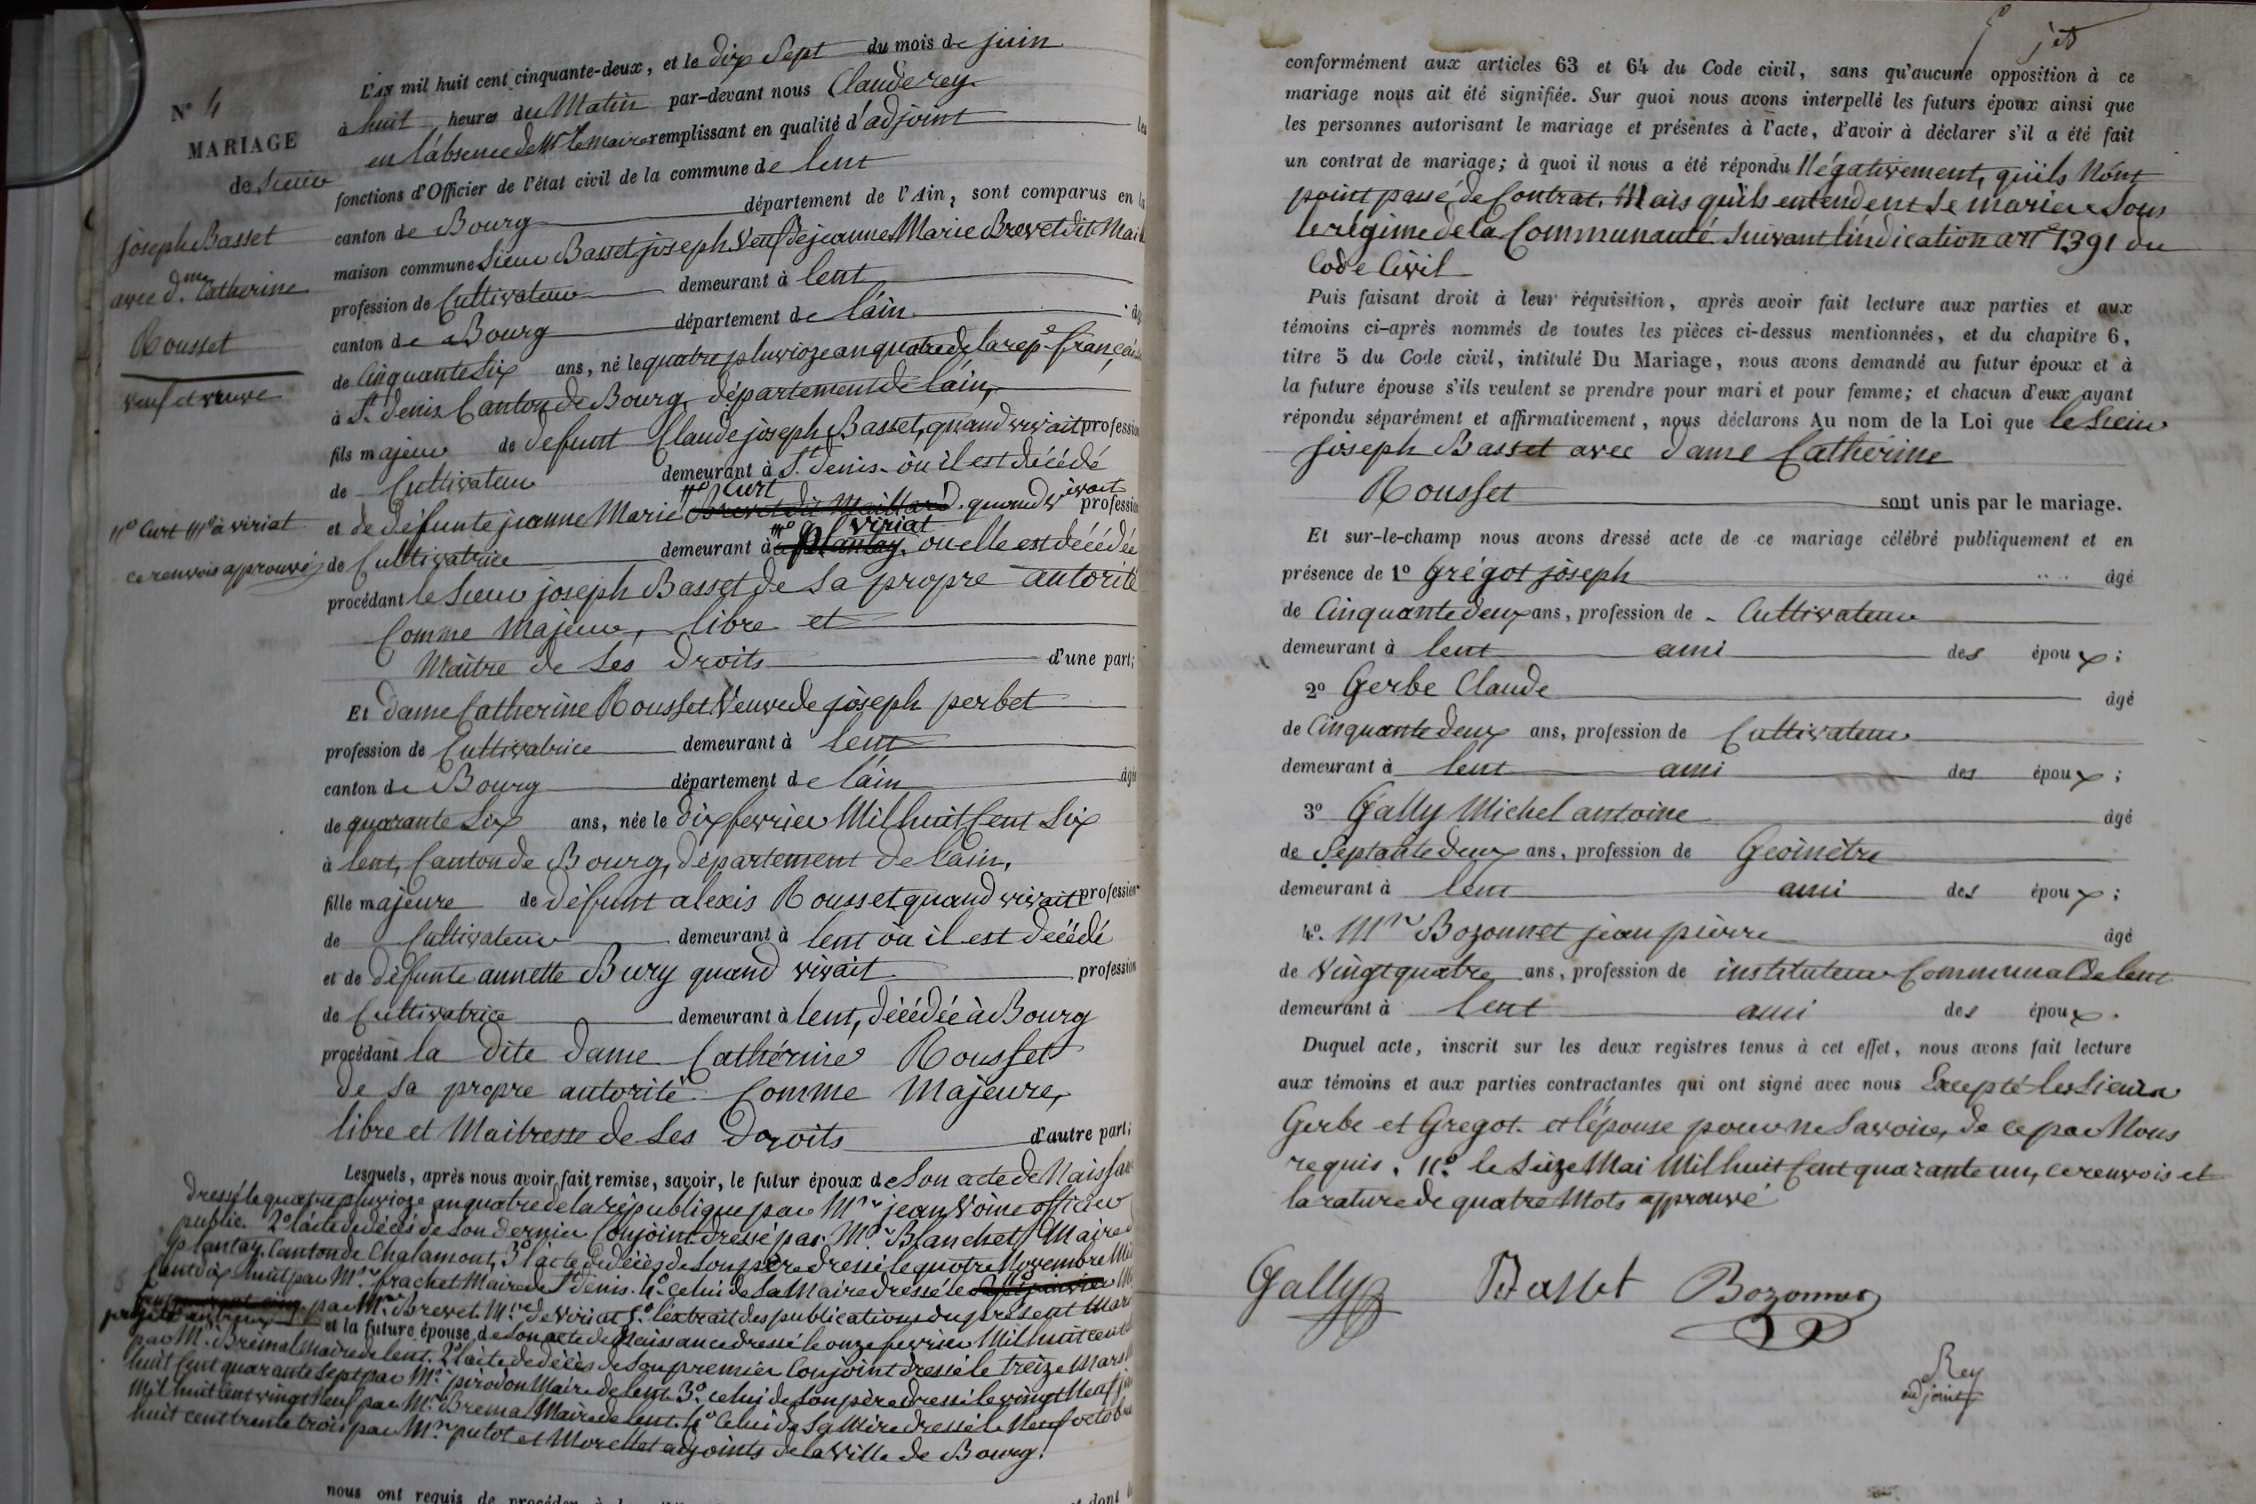 N° 4
MARIAGE
de Sieur
joseph Basset
avec d.me Catherine
Rousset
veuf et veuve
n° Curt m° à viriat
ce renvois approuvé
L'an mil huit cent cinquante-deux, et le dix Sept du mois de juin
à huit heures du Matin par-devant nous Claude rey
en l'absence de Mr le maire remplissant en qualité d'adjoint les
fonctions d'Officier de l'état civil de la commune de lent
canton de Bourg département de l'Ain, sont comparus en la
maison commune Sieur Basset joseph Veuf de jeanne Marie Brevet dit Mail
profession de Cultivateur demeurant à lent
canton de Bourg département de l'ain âgé
de Cinquante Six ans, né le quatre pluvioze an quatre de la rep.e française
à St. denis Canton de Bourg, département de l'ain,
fils majeur de defunt Claude joseph Basset, quand vivait profession
de Cultivateur demeurant à St. denis où il est décédé
et de défunte jeanne Marie n° Curt Brevet dit Maillard quand vivait profession
de Cultivatrice demeurant à m° viriat plantay, ou elle est décédée
procédant le Sieur joseph Basset de Sa propre autorité
Comme Majeur, libre et
Maître de Ses Droits d'une part;
Et dame Catherine Rousset Veuve de joseph perbet
profession de Cultivatrice demeurant à lent
canton de Bourg département de l'ain âgé
de quarante Six ans, née le dix fevrier Mil huit Cent Six
à lent, Canton de Bourg, département de l'ain,
fille majeure de défunt alexis Rousset quand vivait profession
de Cultivateur demeurant à lent où il est décédé
et de défunte annette Bury quand vivait profession
de Cultivatrice demeurant à lent, décédée à Bourg
procédant la dite dame Cathérine Rousset
de Sa propre autorité Comme Majeure,
libre et Maitresse de Ses Droits d'autre part;
Lesquels, après nous avoir fait remise, savoir, le futur époux de Son acte de Naissance
dressé le quatre pluvioze an quatre de la république par Mr jean Voine officier
public. 2° l'acte de décès de Son dernier Conjoint dressé par Mr Blanchet Maire de
plantay, Canton de Chalamont, 3° l'acte de décès de Son père dressé le quatre Novembre Mil
Cent dix huit par Mr. frachet Maire de St denis. 4° Celui de Sa Maire dressé le
par Mr Brevet M.re de viriat 5° l'extrait des publications du présent Mari
et la future épouse de Son acte de Naissance dressé le onze fevrier Mil huit cent
par Mr. Brémal Maire de lent. 2° l'acte de décès de Son premier Conjoint dressé le treize Mars
huit Cent quarante Sept par Mr. pirodon Maire de lent 3° celui de Son père dressé le vingt Neuf
Mil huit Cent vingt Neuf par Mr. Bremal Maire de lent. 4° Celui de Sa Mère dressé le Neuf octobre
huit cent trente trois par Mrs putot et Morellet adjoints de la Ville de Bourg.
nous ont requis de procéder
conformément aux articles 63 et 64 du Code civil, sans qu'aucune opposition à ce
mariage nous ait été signifiée. Sur quoi nous avons interpellé les futurs époux ainsi que
les personnes autorisant le mariage et présentes à l'acte, d'avoir à déclarer s'il a été fait
un contrat de mariage; à quoi il nous a été répondu Négativement, qu'ils N'ont
point passé de Contrat. Mais qu'ils entendent Se marier Sous
le régime de la Communauté Suivant l'indication art° 1391 du
Code Civil
Puis faisant droit à leur réquisition, après avoir fait lecture aux parties et aux
témoins ci-après nommés de toutes les pièces ci-dessus mentionnées, et du chapitre 6,
titre 5 du Code civil, intitulé Du Mariage, nous avons demandé au futur époux et à
la future épouse s'ils veulent se prendre pour mari et pour femme; et chacun d'eux ayant
répondu séparément et affirmativement, nous déclarons Au nom de la Loi que le Sieur
joseph Basset avec dame Cathérine
Rousset sont unis par le mariage.
Et sur-le-champ nous avons dressé acte de ce mariage célébré publiquement et en
présence de 1° Grégot joseph âgé
de Cinquante deux ans, profession de Cultivateur
demeurant à lent ami des époux;
2° Gerbe Claude âgé
de Cinquante deux ans, profession de Cultivateur
demeurant à lent ami des époux;
3° Gally Michel antoine âgé
de Septante deux ans, profession de Geométre
demeurant à lent ami des époux;
4°. Mr Bozonnet jean pierre âgé
de Vingt quatre ans, profession de instituteur Communal de lent
demeurant à lent ami des époux.
Duquel acte, inscrit sur les deux registres tenus à cet effet, nous avons fait lecture
aux témoins et aux parties contractantes qui ont signé avec nous Excepté les Sieurs
Gerbe et Gregot et l'épouse pour ne Savoir, de ce par Nous
requis. n° le Sieze Mai Mil huit Cent quarante un, ce renvois et
la rature de quatre Mots approuvé
Gally Basset Bozonnet
Rey
adjoint